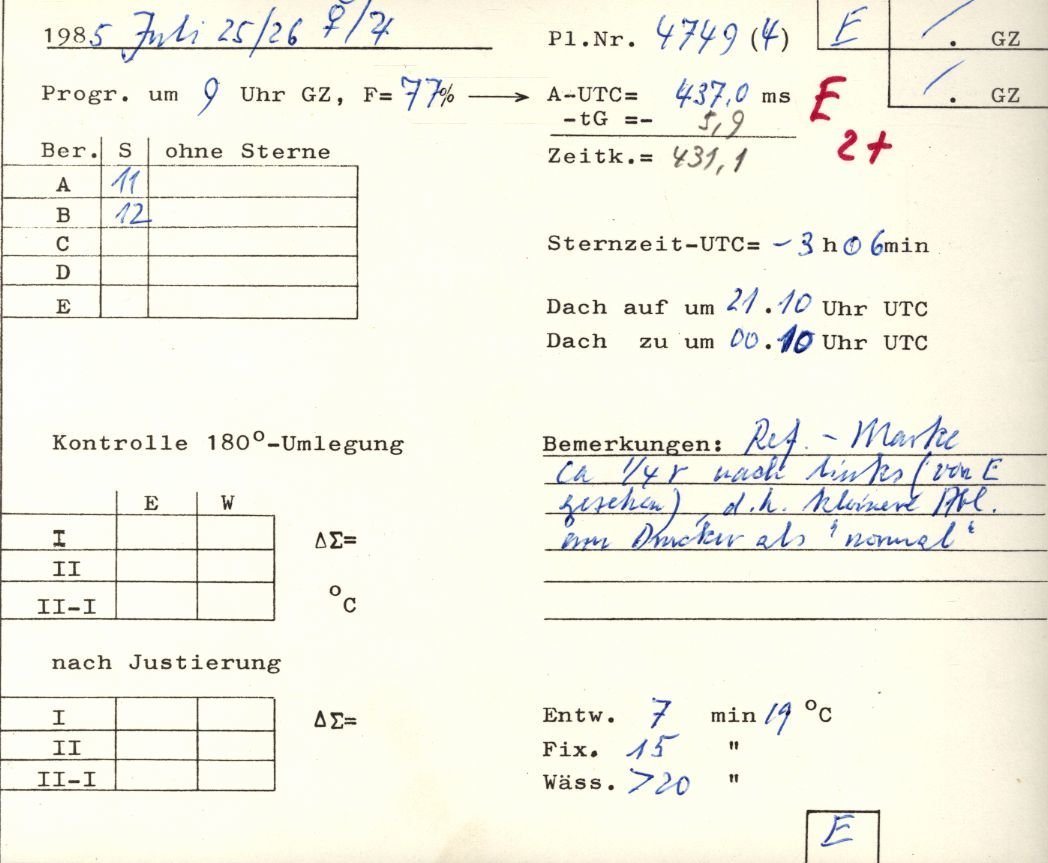 1985 Juli 25/26 ♀/♃
Pl.Nr. 4749 (4)
E
/. GZ
Progr. um 9 Uhr GZ, F= 77% → A-UTC= 437,0 ms
/. GZ
-tG =- 5,9
E
2+
Zeitk.= 431,1
Ber. S ohne Sterne
A 11
B 12
C
D
E
Sternzeit-UTC= -3 h 06 min
Dach auf um 21.10 Uhr UTC
Dach zu um 00.10 Uhr UTC
Kontrolle 180°-Umlegung
E W
I ΔΣ=
II
II-I °C
Bemerkungen: Ref. - Marke
ca 1/4 r nach links (von E
gesehen), d.h. kleinere Abl.
am Drucker als "normal"
nach Justierung
I ΔΣ=
II
II-I
Entw. 7 min 19 °C
Fix. 15 "
Wäss. >20 "
E